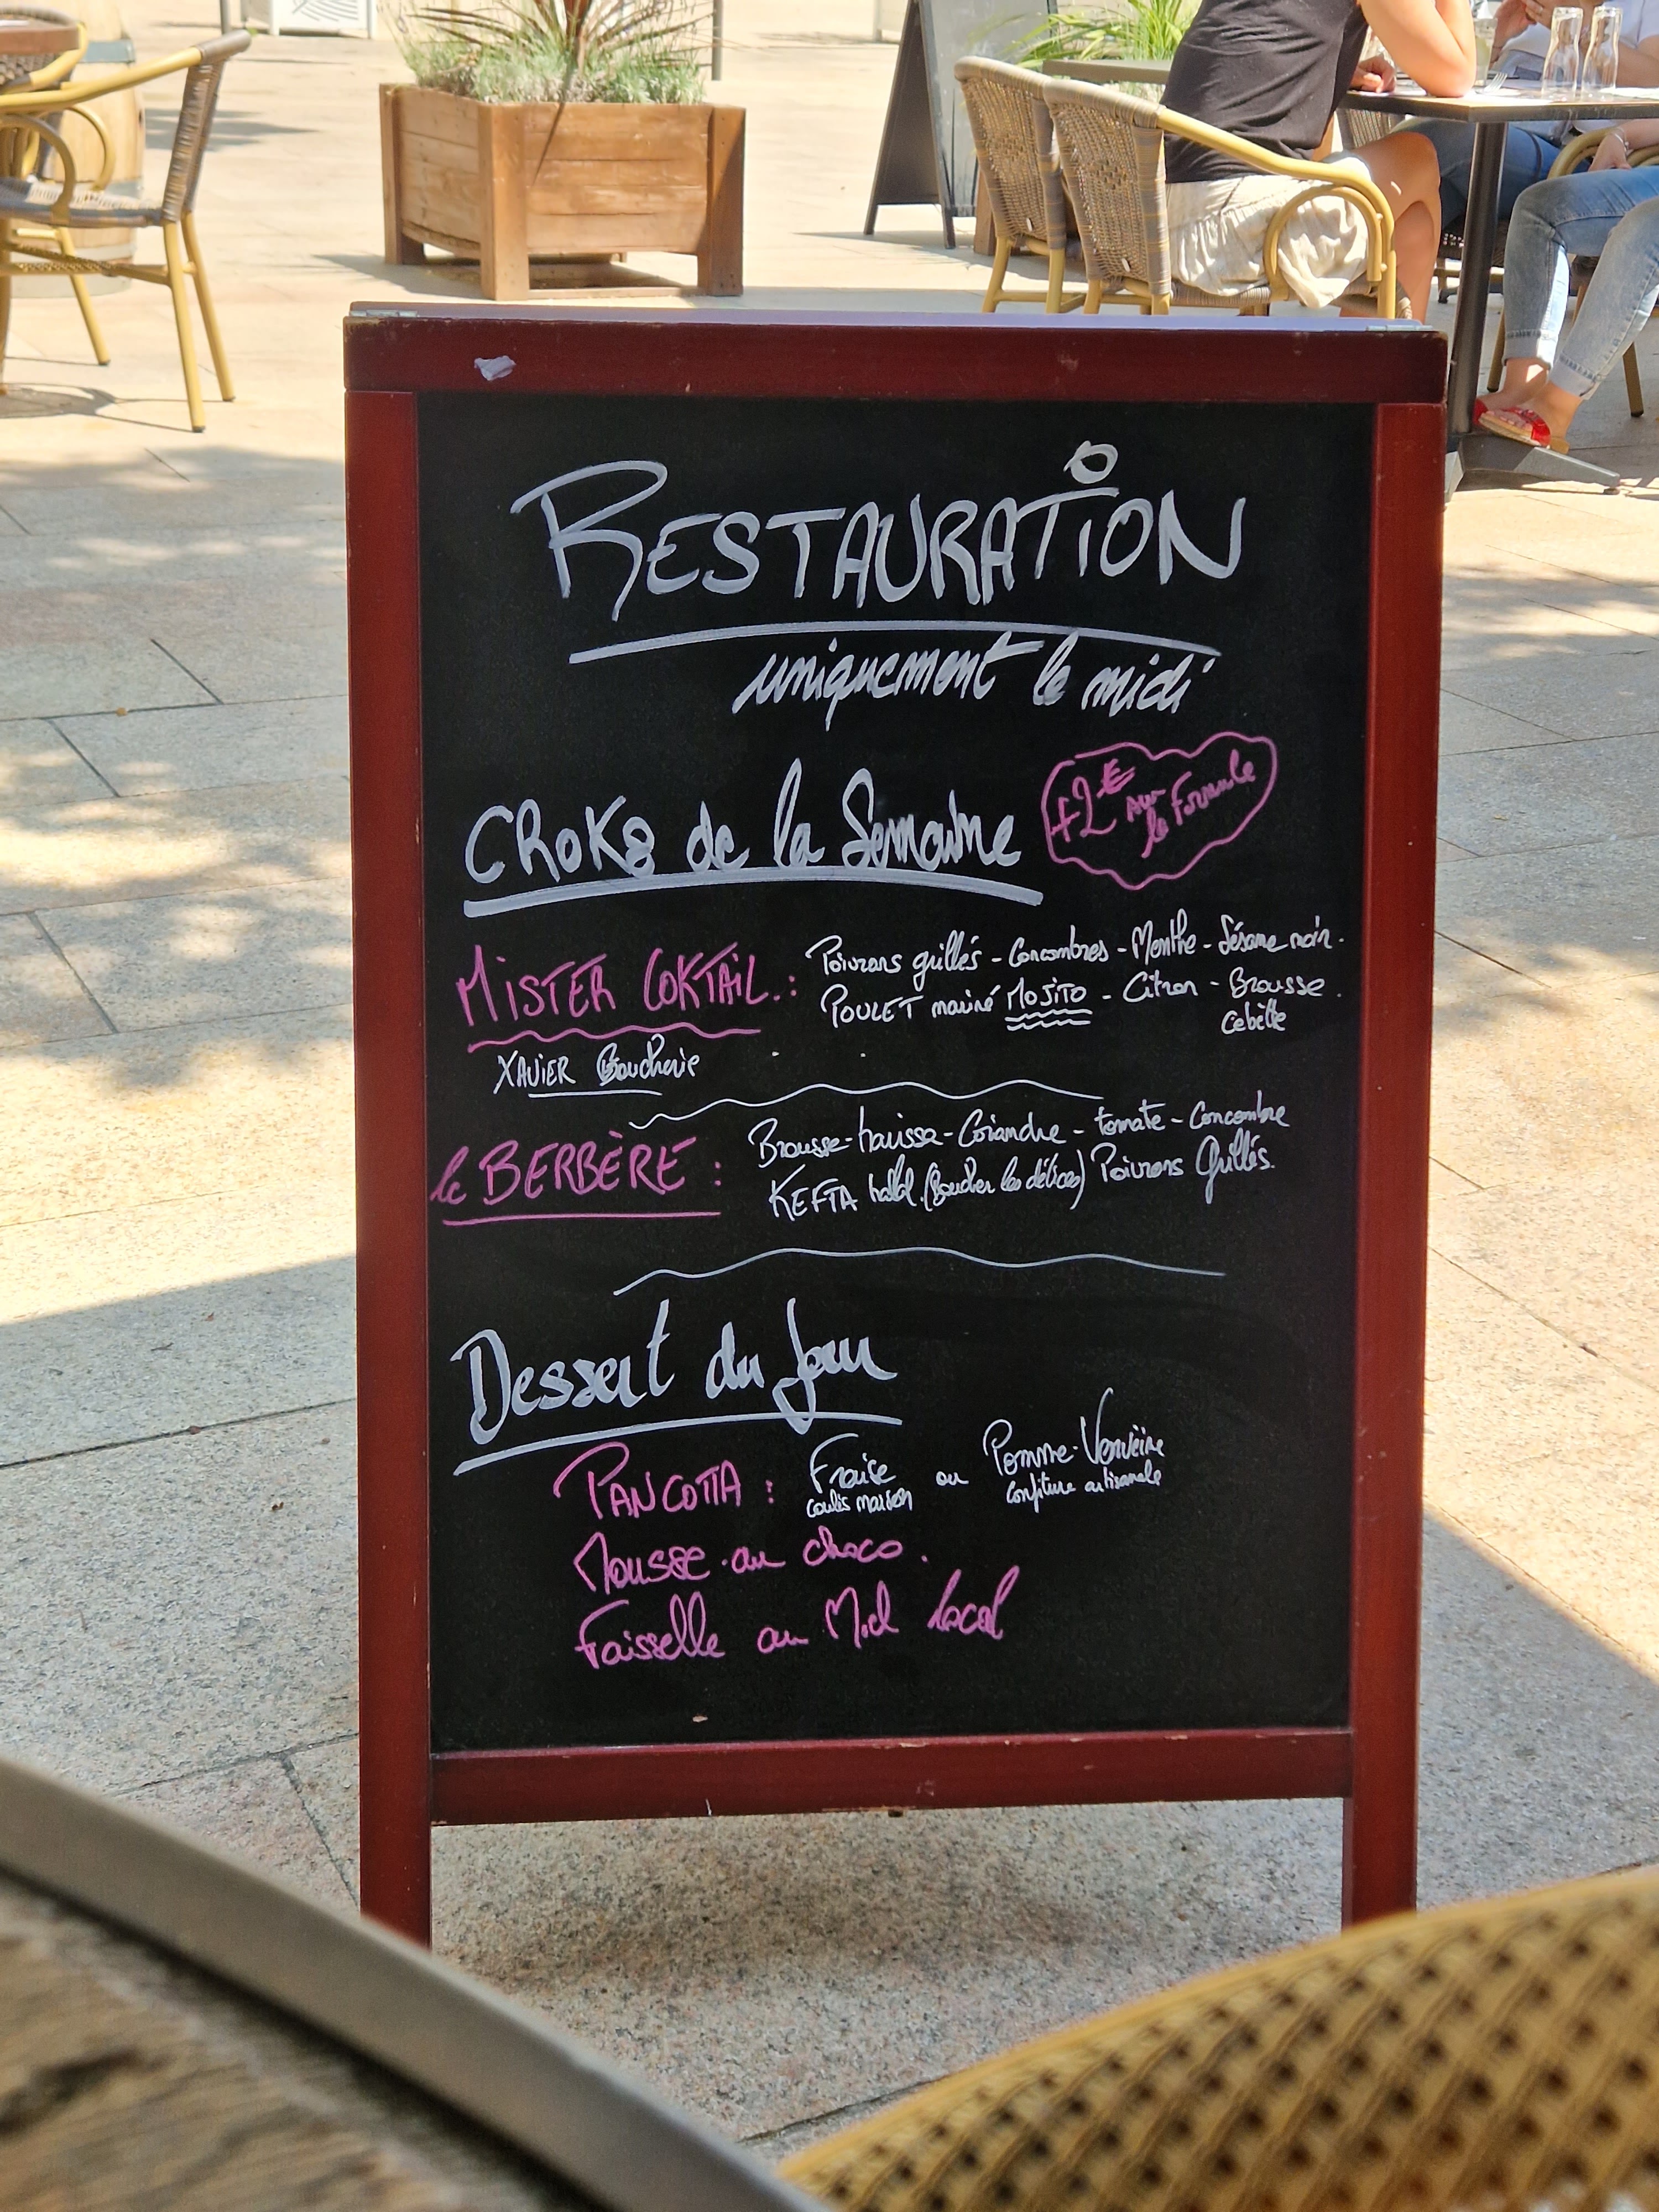 RESTAURATION
uniquement le midi
CROKS de la Semaine
+2€ sur la Formule
MISTER COKTAIL : Poivrons grillés - Concombres - Menthe - Sésame noir.
POULET mariné MOJITO - Citron - Brousse.
Cebette
XAVIER Boucherie
le BERBÈRE : Brousse - harissa - Coriandre - tomate - Concombre
KEFTA halal (Boucher les délices) Poivrons Grillés.
Dessert du Jour
PANCOTTA : Fraise ou Pomme-Verveine
coulis maison confiture artisanale
Mousse au choco.
Faisselle au Miel local